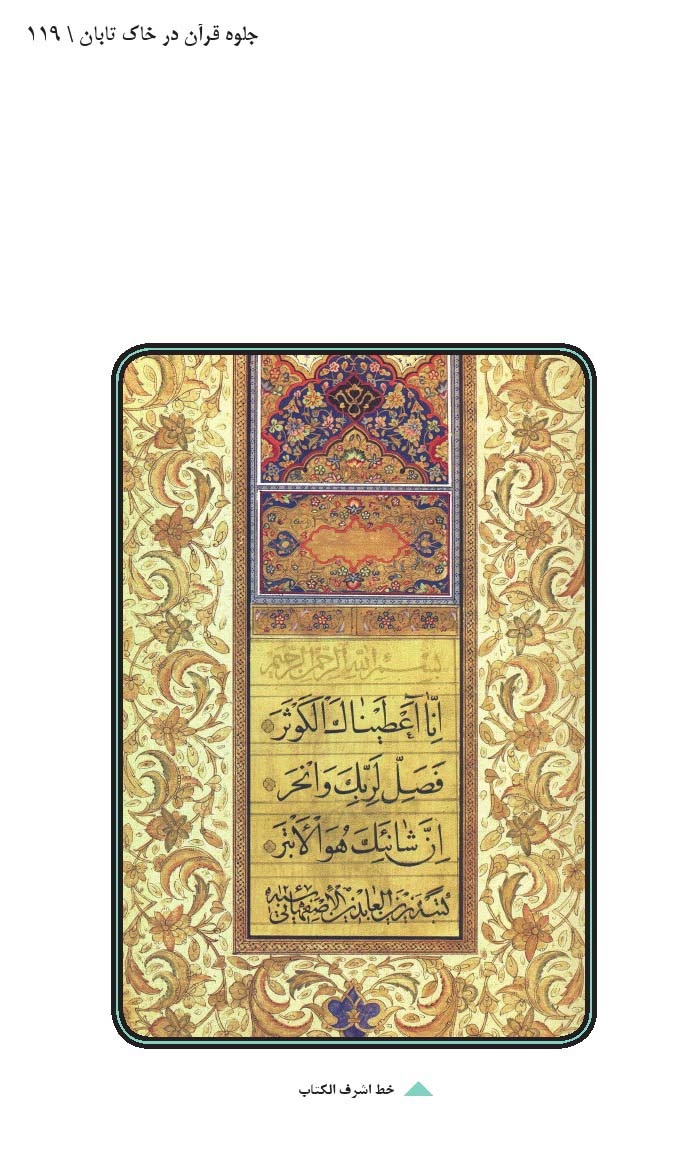 جلوه قرآن در خاک تابان \ ۱۱۹
بسم الله الرحمن الرحیم
اِنَّا اَعْطَیْنَاكَ الْكَوْثَرَ
فَصَلِّ لِرَبِّكَ وَانْحَرْ
اِنَّ شَانِئَكَ هُوَ الْاَبْتَرُ
كتبه زین العابدین الاصفهانی
خط اشرف الکتاب